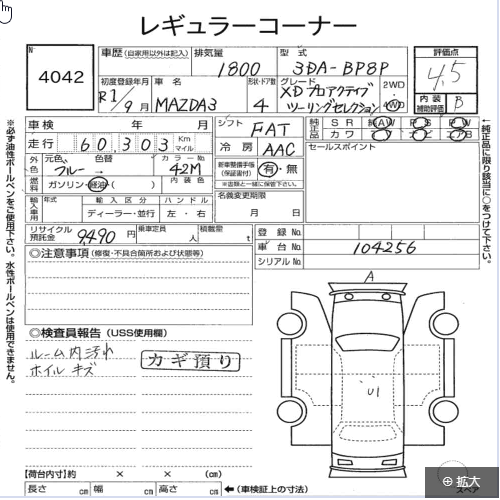 レギュラーコーナー
No
4042
車歴 (自家用以外は記入) 排気量 型式
1800 3DA-BP8P
評価点
4.5
内装補助評価 B
初度登録年月 車名 形状・ドア数 グレード 2WD・4WD
R1/9月 MAZDA3 4 XDプロアクティブ
ツーリングセレクション
車検 年 月
走行 60,303 Km マイル
シフト FAT
冷房 AAC
純正品 SR AW PS PW
カワ TV ナビ エアB
セールスポイント
外色 元色 色替 カラーNo.
ブルー → 42M
燃料 ガソリン・軽油・( ) 内装色
新車整備手帳(保証書付) 有・無
※書類と一緒に保管下さい。
輸入車用 年式 輸入区分 ハンドル
ディーラー・並行 左・右
名義変更期限
月 日
リサイクル預託金 9,490 円 乗車定員 人 積載量 t
登録No.
車台No. 104256
シリアルNo.
◎注意事項(修復・不具合箇所および状態等)
◎検査員報告(USS使用欄)
ルーム内汚れ
ホイルキズ
カギ預り
A
U1
【荷台内寸】 × × (cm)
長さ cm 幅 cm 高さ cm ←(車検証上の寸法)
スペア
拡大
※必ず油性ボールペンをご使用下さい。水性ボールペンは使用できません。
←純正品に限り該当に○をつけて下さい。